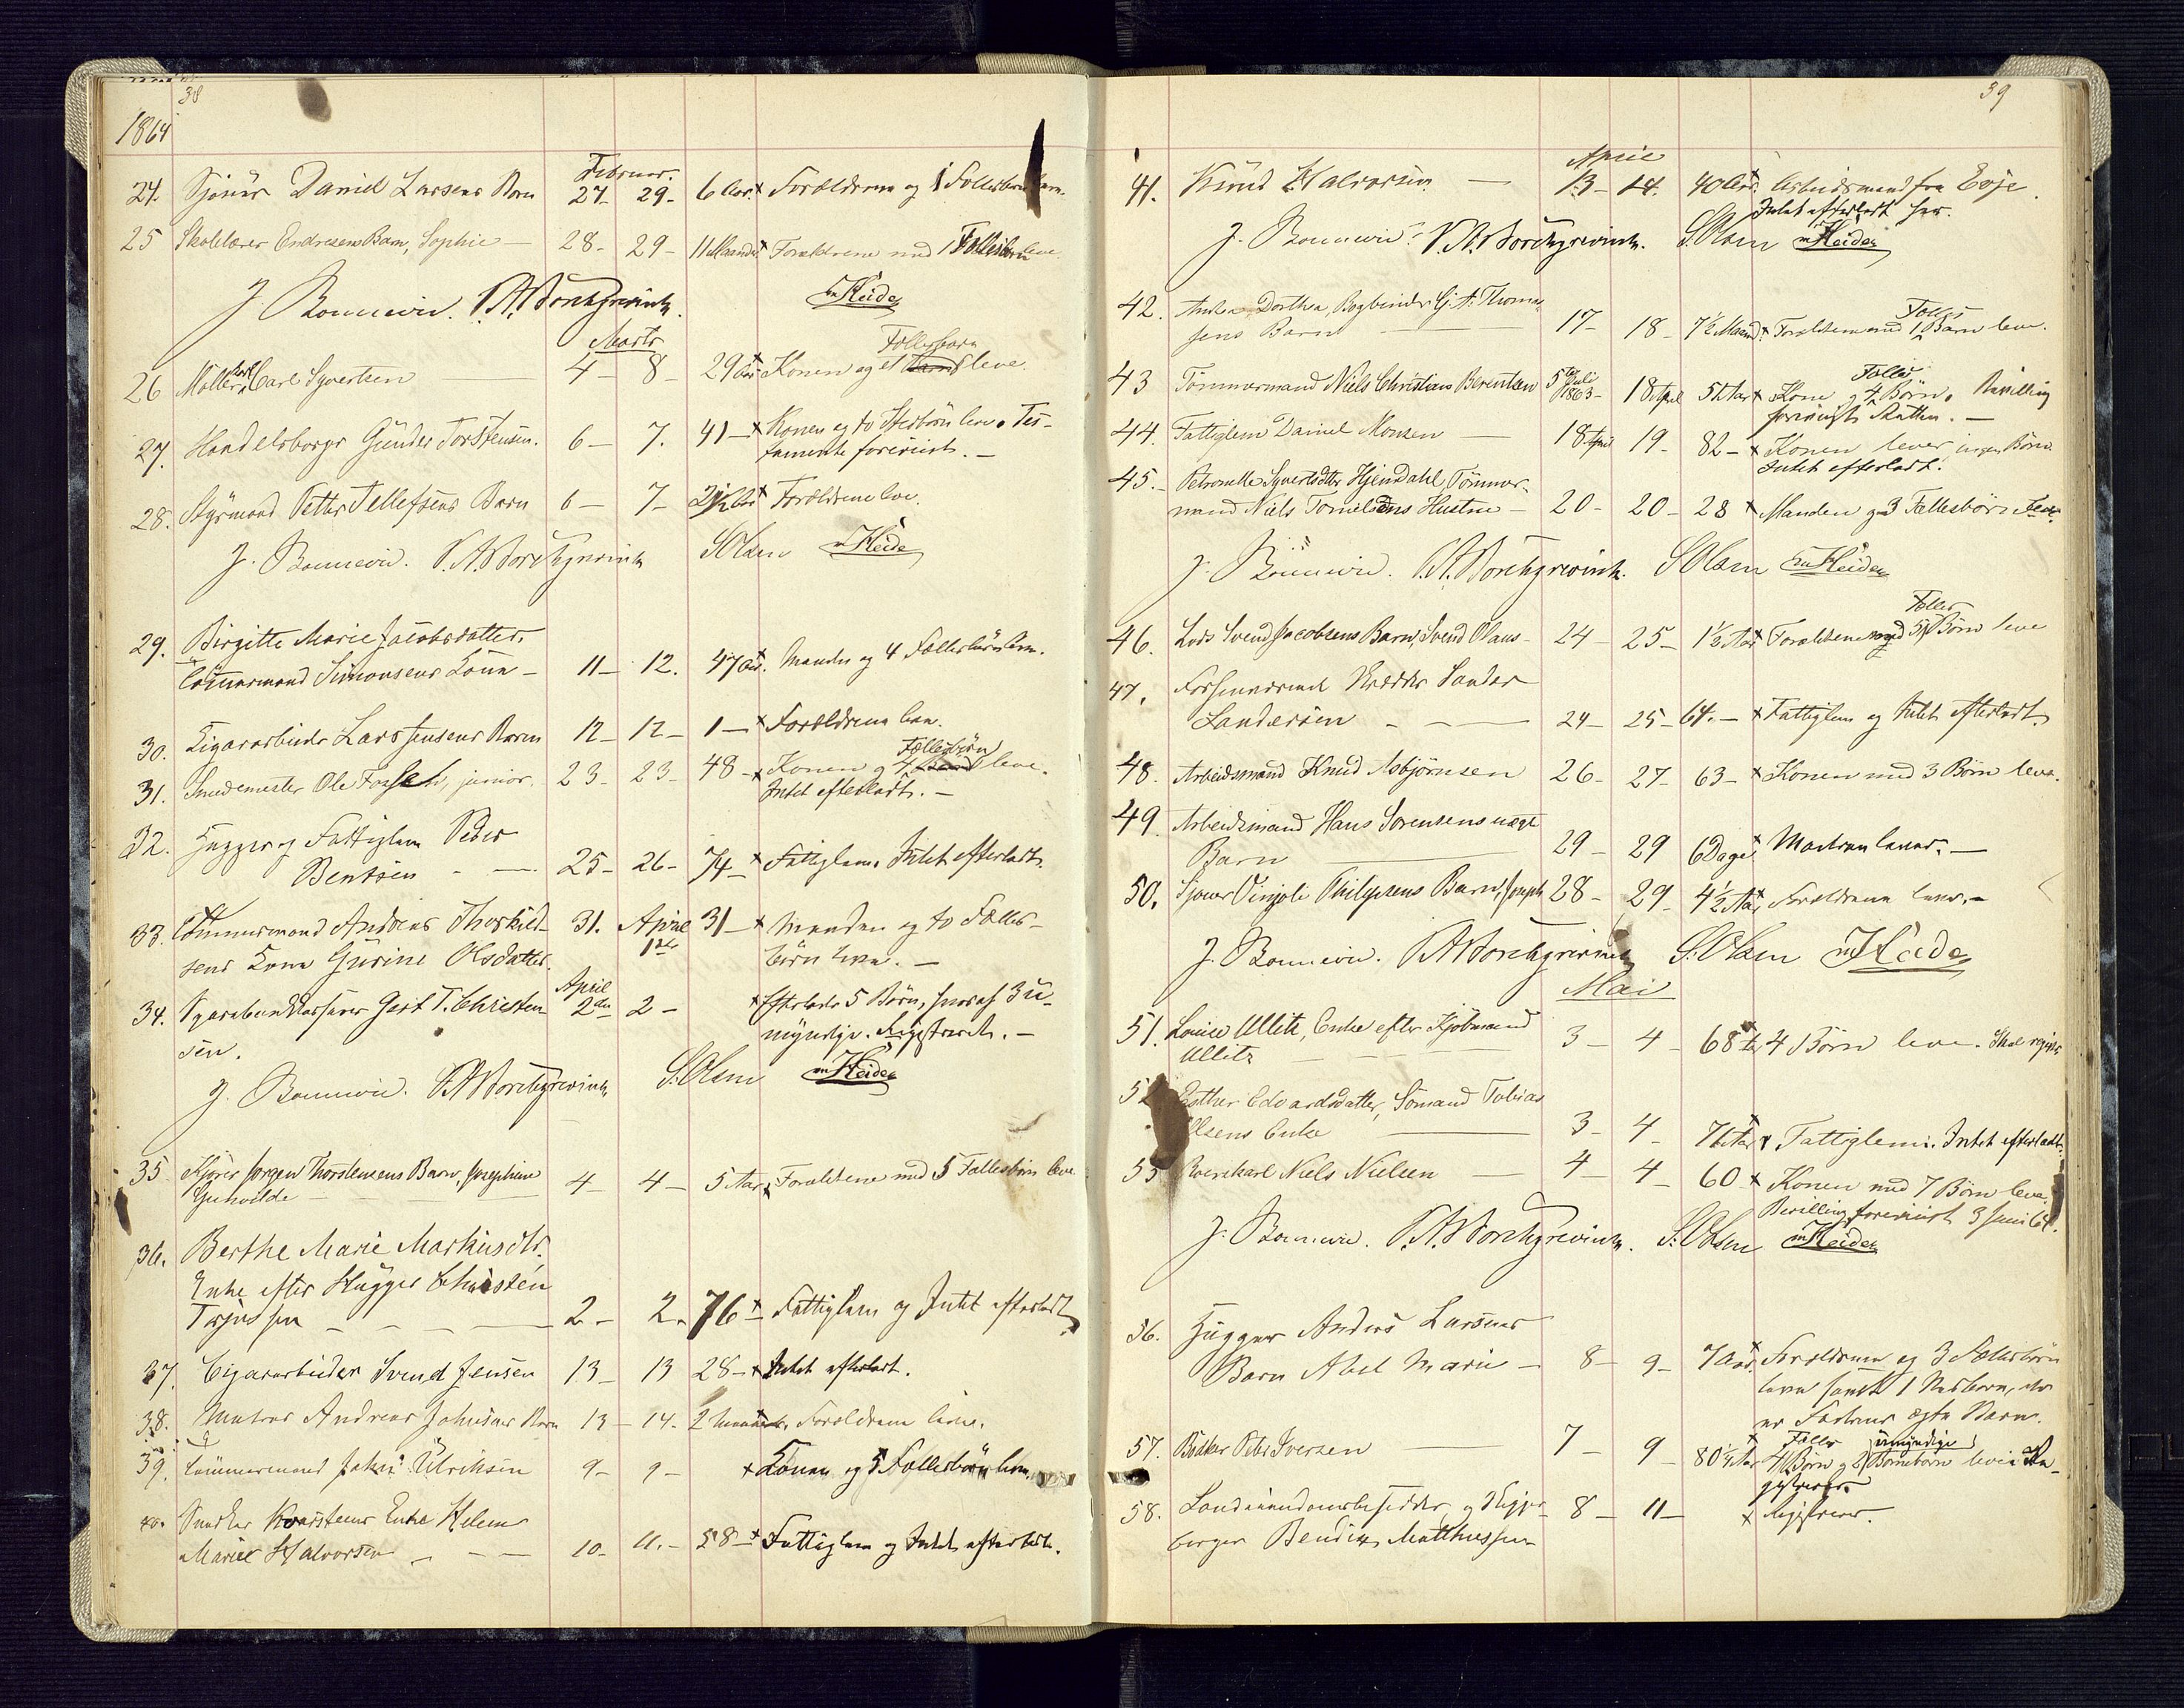 38
1864
Februar.
24. Sjöuer Daniel Larsens Barn 27- 29- 6 Aar. x Forældrene og 1 Fællesbarn
25 Skolelærer Endresens Barn, Sophie — 28- 29- 11 Maaneder x Forældrene med 1 Fællesbarn leve.
J. Bonnevie. V.A. Borchgrevink. Heide
Marts
Fællesbarn
26 Møller Carl Syvertsen — 4- 8- 29 Aar x Konen og et leve.
27. Handelsborger Günder Torstensen. 6- 7. 41- x Konen og to Stedbörn leve. Tes-
tamente foreviist. —
28. Styrmand Petter Tellefsens Barn 6- 7- 2½ Aar x Forældrene leve.
J. Bonnevie. V.A. Borchgrevink S Olsen Heide
29. Birgitte Marie Jacobsdatter,
Tömmermand Simonsens Kone - 11- 12. 47 Aar. Manden og 4 Fællesbörn leve.
30. Sigararbeider Lars Jensens Barn 12- 12- 1- x Forældrene leve.
Fællesbörn
31. Smedemester Ole , junior. 23- 23- 48- x Konen og 4 leve.
Intet efterladt. —
32. Hugger og Fattiglem Peder
Bentsen - — 25- 26- 74- x Fattiglem. Intet efterladt.
33. Tömmermand Andreas Thorkild- 31. April 1ste 31- x Manden og to Fælles-
sens Kone Gurine Olsdatter. börn leve. —
April
34. Gert T. Christen- 2den 2- x Efterlader 5 Börn, hvoraf 3 u-
sen. myndige. Registreret. —
J. Bonnevie. V.A. Borchgrevink S. Olsen Heide
35 Kjører Jörgen Thorstensens Barn, Josephine
Gunvilde — 4- 4- 5 Aar x Forældrene med 5 Fællesbörn leve
36. Berthe Marie Markusdtr.
Enke efter Hugger Christen
Terjessen — 2- 2. 76- x Fattiglem og Intet efterladt.
37. Cigararbeider Svend Jensen 13- 13 28- x Intet efterladt.
38. Matros Andreas Johnsens Barn 13- 14. 2 Forældrene leve.
39. Tömmermand Ulriksen 9- 9- x Konen og 5 Fællesbörn leve.
40. Enke Helene
Marie Halvorsen - — 10- 11.- 58- x Fattiglem og Intet efterladt.
39
April
41. Knud Halvorsen — 13- 14. 40 Aar. Arbeidsmand fra Evje.
Intet efterladt her.
J. Bonnevie. V.A. Borchgrevink. S. Olsen Heide
42. Dorthea, Bogbinder G. A. Thoma-
Fælles
sens Barn — 17- 18- 7½ Maaned x Forældrene med 1 Barn leve.
Fælles
43 Tömmermand Niels Christian Berentsen 5te Juli 1863- 18 April 51 Aar x Kone og 4 Börn. Bevilling
foreviist Skiftten. —
44. Fattiglem Daniel Monsen — 18 April 19- 82- x Konen lever, ingen Börn.
Intet efterladt.
45.- Petronelle Syvertsdtter Hjendahl, Tömmer-
mand Niels Hustru - 20- 20- 28 x Manden og 3 Fællesbörn leve.
J. Bonnevie. V.A. Borchgrevink. S Olsen Heide
Fælles
46. Lods Svend Jacobsens Barn, Svend Olaus- 24- 25- 1½ Aar x Forældrene med 5 Börn leve
47. Sander
Sandersen - — 24- 25- 64.- x Fattiglem og Intet efterladt.
48. Arbeidsmand Knud Asbjörnsen 26- 27- 63- x Konen med 3 Börn leve.
49. Arbeidsmand Hans Sörensens uægt
Barn — 29- 29 6 Dage x Moderen lever. —
50. Sjöuer Philipsens Barn, Joseph 28- 29- 4½ Aar x Forældrene leve. —
J. Bonnevie. V.A. Borchgrevink S. Olsen Heide
Mai
51. Louise Ullitz, Enke efter Kjöbmand
Ullitz — 3- 4- 68 Aar 4 Börn leve.
52 Esther Edvardsdatter, Sömand Tobias
Olsens Enke — 3- 4- 76 Aar x Fattiglem. Intet efterladt.
53 Niels Nielsen — 4- 4- 60- x Konen med 7 Börn leve.
Bevilling foreviist 3 Juni 64.
J. Bonnevie. V.A. Borchgrevink. S. Olsen Heide
56. Hugger Anders Larsens
Barn Abel Marie — 8- 9- 7 Aar. Forældrene og 3 Fællesbörn
leve samt 1
er Faderens ægte Barn.
Fælles umyndige
57. Bödker Peder Iversen — 7- 9- 80½ Aar x 4 Börn og 2 Börnebörn leve. Re-
gistreret.
58. og Skipper- 8- 11- x Registreret.
borger Bendix Matthiessen